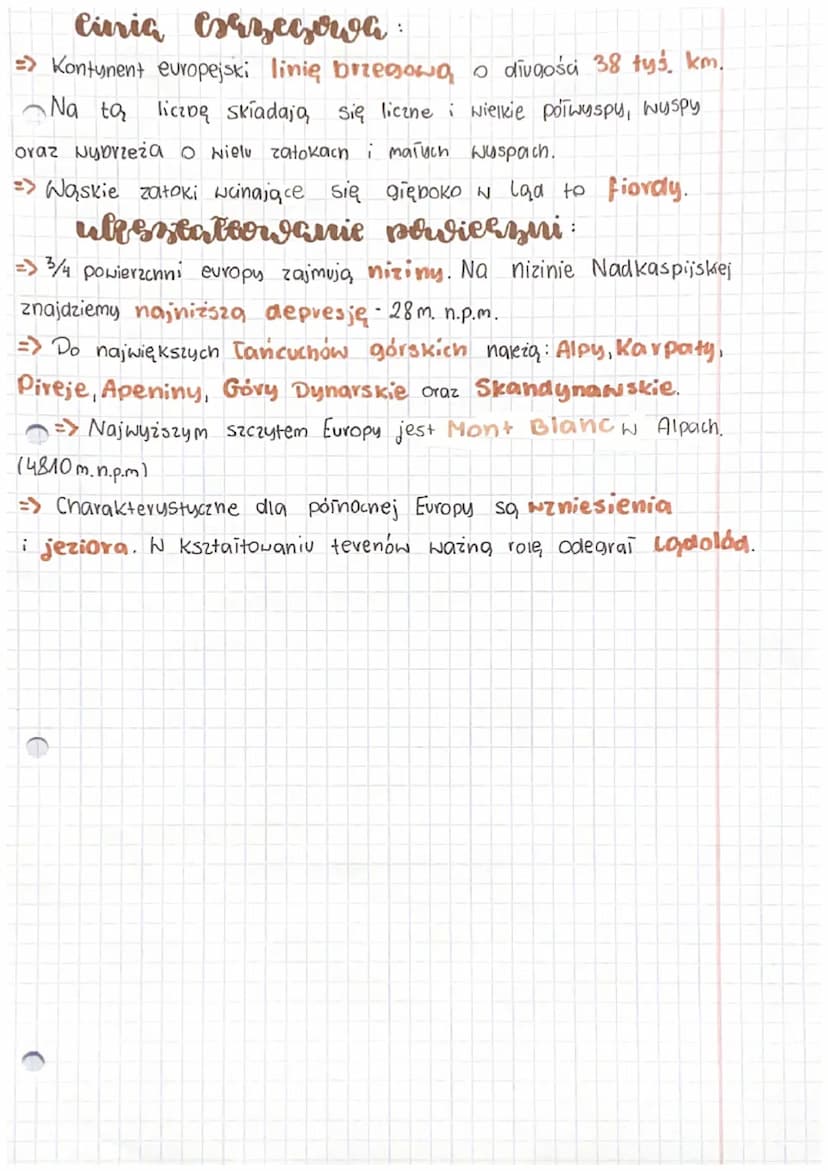 Linia brzegowa:
=> Kontynent europejski linię brzegową o długości 38 tyś. km.
Na tą liczbę składają się liczne i wielkie półwyspy, wyspy
oraz wybrzeża o wielu zatokach i małych wyspach.
=> Wąskie zatoki wcinające się głęboko w ląd to fiordy.
ukształtowanie powierzchni:
=> 3/4 powierzchni europy zajmują niziny. Na nizinie Nadkaspijskiej
znajdziemy najniższą depresję - 28 m. n.p.m.
=> Do największych łańcuchów górskich należą: Alpy, Karpaty,
Pireje, Apeniny, Góry Dynarskie oraz Skandynawskie.
=> Najwyższym szczytem Europy jest Mont Blanc w Alpach.
(4810 m.n.p.m)
=> Charakterystyczne dla północnej Europy są wzniesienia
i jeziora. W kształtowaniu terenów ważną rolę odegrał Lądolód.